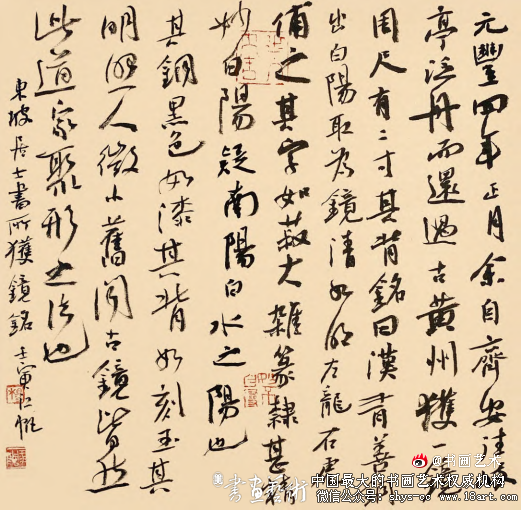 元豐四年正月余自齊安往岐
亭泛舟而還過古黃州獲一鏡
周尺有二寸其背銘曰漢有善銅
出白陽取為鏡清如明左龍右虎
俌之其字如菽大雜篆隸甚精
妙白陽疑南陽白水之陽也
其銅黑色如漆其背如刻玉其
明照人微小舊聞古鏡皆然
此道家聚形之法也
東坡居士書所獲鏡銘 壬寅
@书画艺术
書画藝術
中国最大的书画艺术权威机构
微信公众号：shys-oo www.18art.com